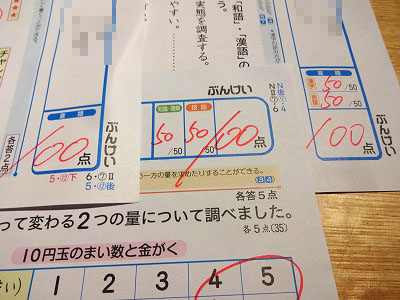 チャ
各答2点
言語
100点
ぶんけい
5・⑫下 6・⑦Ⅱ
5・⑫後
「和語」・「漢語」の
う。
実態を調査する。
やすい。
ぶんけい
知識・理解
技能
50 /50
50 /50
100点
N後①-4
NⅡ⑦-6
一方の量を求めたりすることができる。
各答5点
って変わる2つの量について調べました。
各5点(35)
10円玉のまい数と金がく
い)
1 2 3 4 5
言語
漢字
50 /50
50 /50
100点
ぶんけい